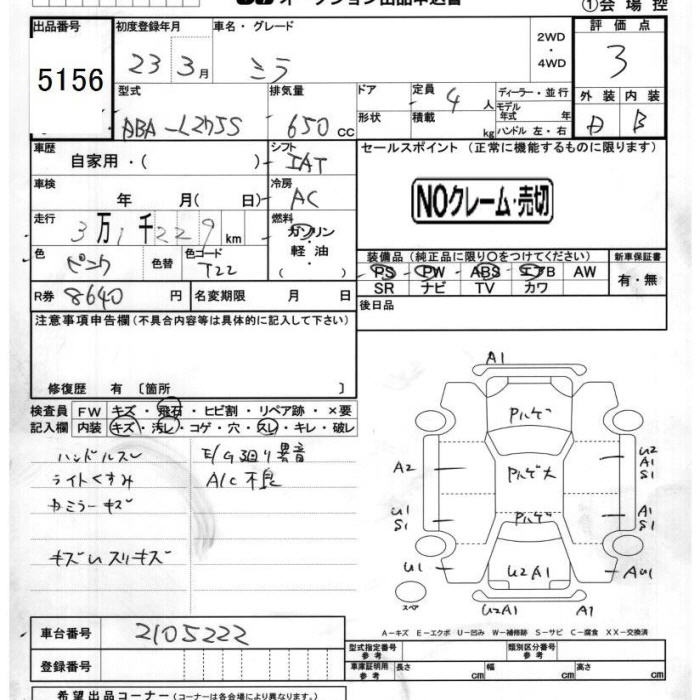 オークション出品申込書
①会場控
出品番号 5156
初度登録年月 23 3月
車名・グレード ミラ
2WD・4WD
評価点 3
型式 DBA-L275S
排気量 650 cc
ドア 形状
定員 4人
積載 kg
ディーラー・並行
モデル年式 年
ハンドル 左・右
外装 内装 B
車歴 自家用・( )
シフト IAT
セールスポイント (正常に機能するものに限ります)
NOクレーム・売切
車検 年 月( 日)
冷房 AC
走行 3万1千229km
燃料 ガソリン・軽油・( )
色 ピンク
色替
色コード T22
装備品 (純正品に限り○をつけてください)
新車保証書
PS PW ABS エアB AW
SR ナビ TV カワ
有・無
R券 8640円
名変期限 月 日
後日品
注意事項申告欄 (不具合内容等は具体的に記入して下さい)
修復歴 有 〔箇所 〕
検査員記入欄
FW キズ・飛石・ヒビ割・リペア跡・×要
内装 キズ・汚レ・コゲ・穴・スレ・キレ・破レ
ハンドルスレ E/G廻り異音
ライトくすみ A/C不良
ミラーキズ
キズUスリキズ
A1
Pルゲ
A2
Pルゲ大
U2
A1
S1
U1
S1
Pルゲ
A1
S1
U1
U2A1
AU1
スペア
U2A1
A1
A-キズ E-エクボ U-凹み W-補修跡 S-サビ C-腐食 XX-交換済
車台番号 2105222
登録番号
型式指定番号 参考
類別区分番号 参考
車庫証明用 参考 長さ cm 幅 cm 高さ cm
希望出品コーナー (コーナーは各会場により異なります。)